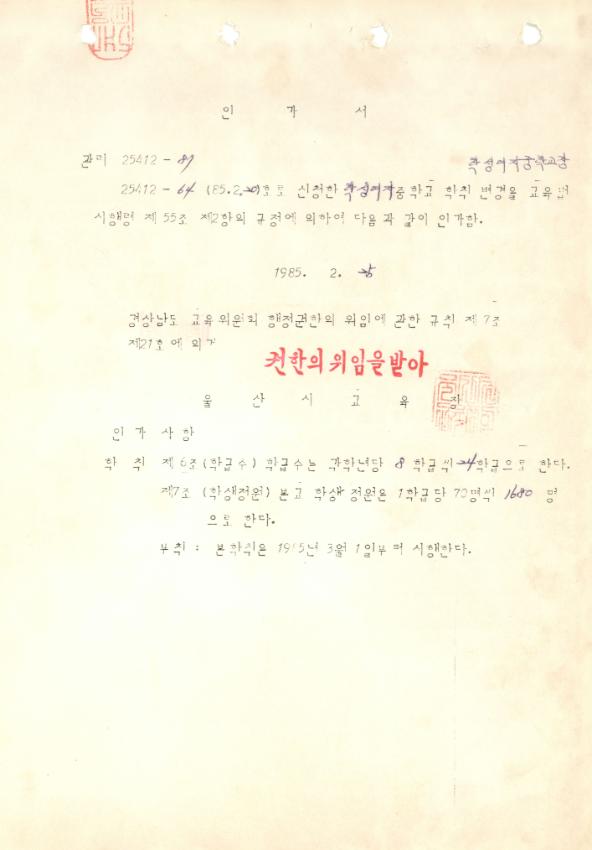 인 가 서
관리 25412-87 학성여자중학교장
25412-64 (85.2.20)호로 신청한 학성여자중학교 학칙 변경을 교육법
시행령 제55조 제2항의 규정에 의하여 다음과 같이 인가함.
1985. 2. 25
경상남도 교육위원회 행정권한의 위임에 관한 규칙 제7조
제21호에 의거
권한의위임을받아
울 산 시 교 육 장
인 가 사 항
학 칙 제6조(학급수) 학급수는 각학년당 8학급씩 24학급으로 한다.
제7조 (학생정원) 본교 학생 정원은 1학급당 70명씩 1680 명
으로 한다.
부칙 : 본학칙은 1985년 3월 1일부터 시행한다.